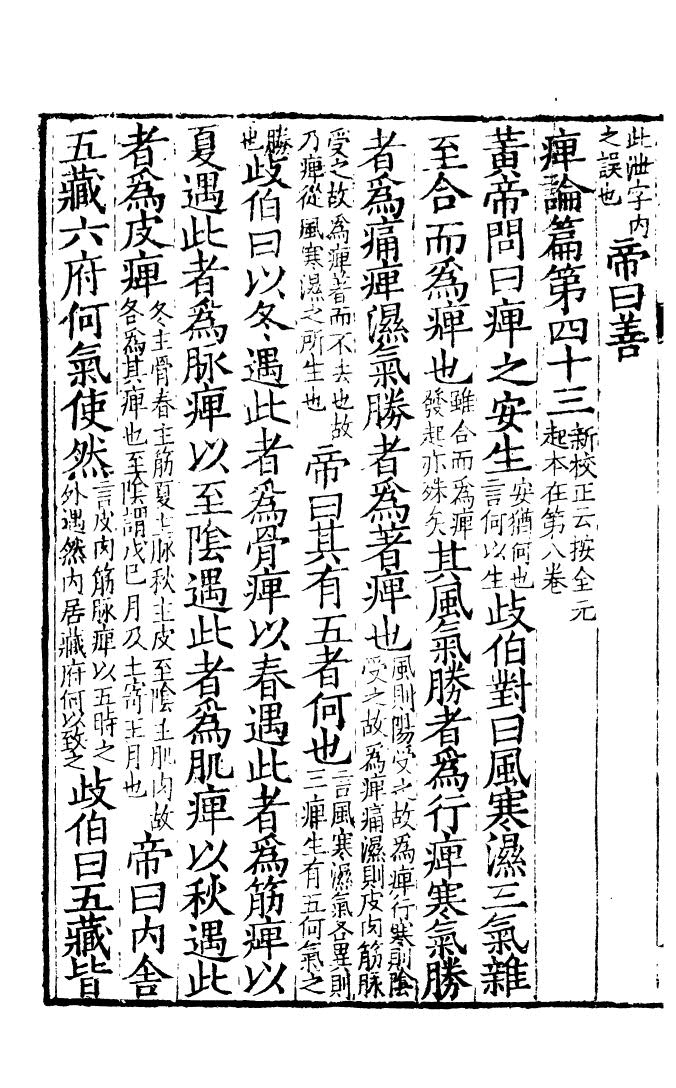 此泄字内之誤也帝曰善
痺論篇第四十三新校正云按全元起本在第八卷
黃帝問曰痺之安生安猶何也言何以生歧伯對曰風寒濕三氣雜
至合而爲痺也雖合而爲痺發起亦殊矣其風氣勝者爲行痺寒氣勝
者爲痛痺濕氣勝者爲著痺也風則陽受之故爲痺行寒則陰受之故爲痺痛濕則皮肉筋脉
受之故爲痺著而不去也故乃痺從風寒濕之所生也帝曰其有五者何也言風寒濕氣各異則三痺生有五何氣之
勝也歧伯曰以冬遇此者爲骨痺以春遇此者爲筋痺以
夏遇此者爲脉痺以至陰遇此者爲肌痺以秋遇此
者爲皮痺冬主骨春主筋夏主脉秋主皮至陰主肌肉故各爲其痺也至陰謂戊己月及土寄王月也帝曰内舍
五藏六府何氣使然言皮肉筋脉痺以五時之外遇然内居藏府何以致之歧伯曰五藏皆